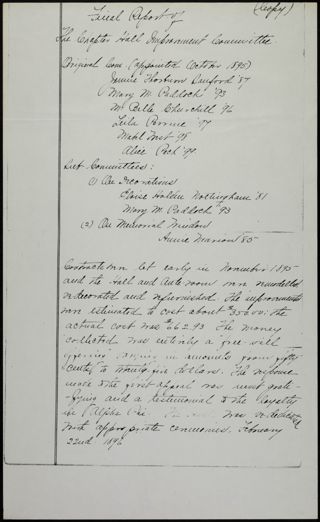 (Copy)
Final Report of
The Chapter Hall Improvement Committee
Original Com. (appointed October 1895)
Jennie Thorburn Sanford '87
Mary M. Padlock '93
M. Belle Churchill '96
Lula Perrine '97
Mabel 98
Alice Peck '99
Sub Committees:
(1) On Decorations
Eloise Holden Nottingham '81
Mary M. Padlock 93
(2) On Memorial Window
Annie 85
Contracts were let early in November 1895
and the Hall and Ante room were remodelled
redecorated and refurnished. The improvements
were estimated to cost about $350.00: the
actual cost was 662.93. The money
collected was entirely a free-will
offering ranging in amounts from fifty
cents to twenty-five dollars. The response
made to the first appeal was most grati-
fying and a testimonial to the loyalty
in Alpha Phi. was rededicated
with appropriate ceremonies, February
22nd 1896